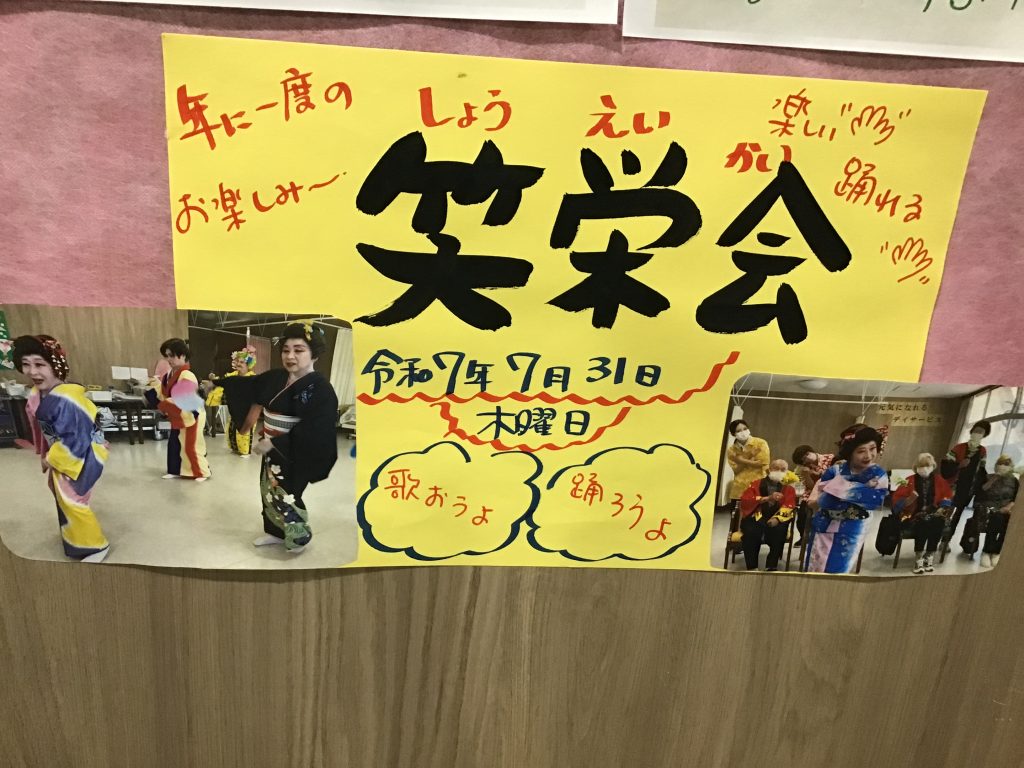 年に一度の
お楽しみ〜
しょう えい かい
笑栄会
楽しい
踊れる
令和7年7月31日
木曜日
歌おうよ
踊ろうよ
元気になれる
デイサービス